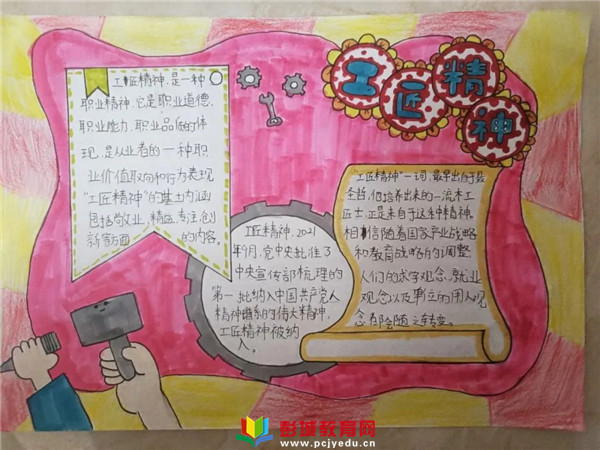 工匠精神
工匠精神,是一种
职业精神,它是职业道德,
职业能力,职业品质的体
现,是从业者的一种职
业价值取向和行为表现
“工匠精神”的基本内涵
包括敬业、精益、专注、创
新等方面的内容。
工匠精神,2021
年9月,党中央批准了
中央宣传部梳理的
第一批纳入中国共产党人
精神谱系的伟大精神,
工匠精神被纳
入。
“工匠精神”一词,最早出自于聂
圣哲,他培养出来的一流木工
匠士,正是来自于这种精神。
相信随着国家产业战略
和教育战略的调整
人们的求学观念,就业
观念以及单位的用人观
念都会随之转变。
彭城教育网
www.pcjyedu.cn